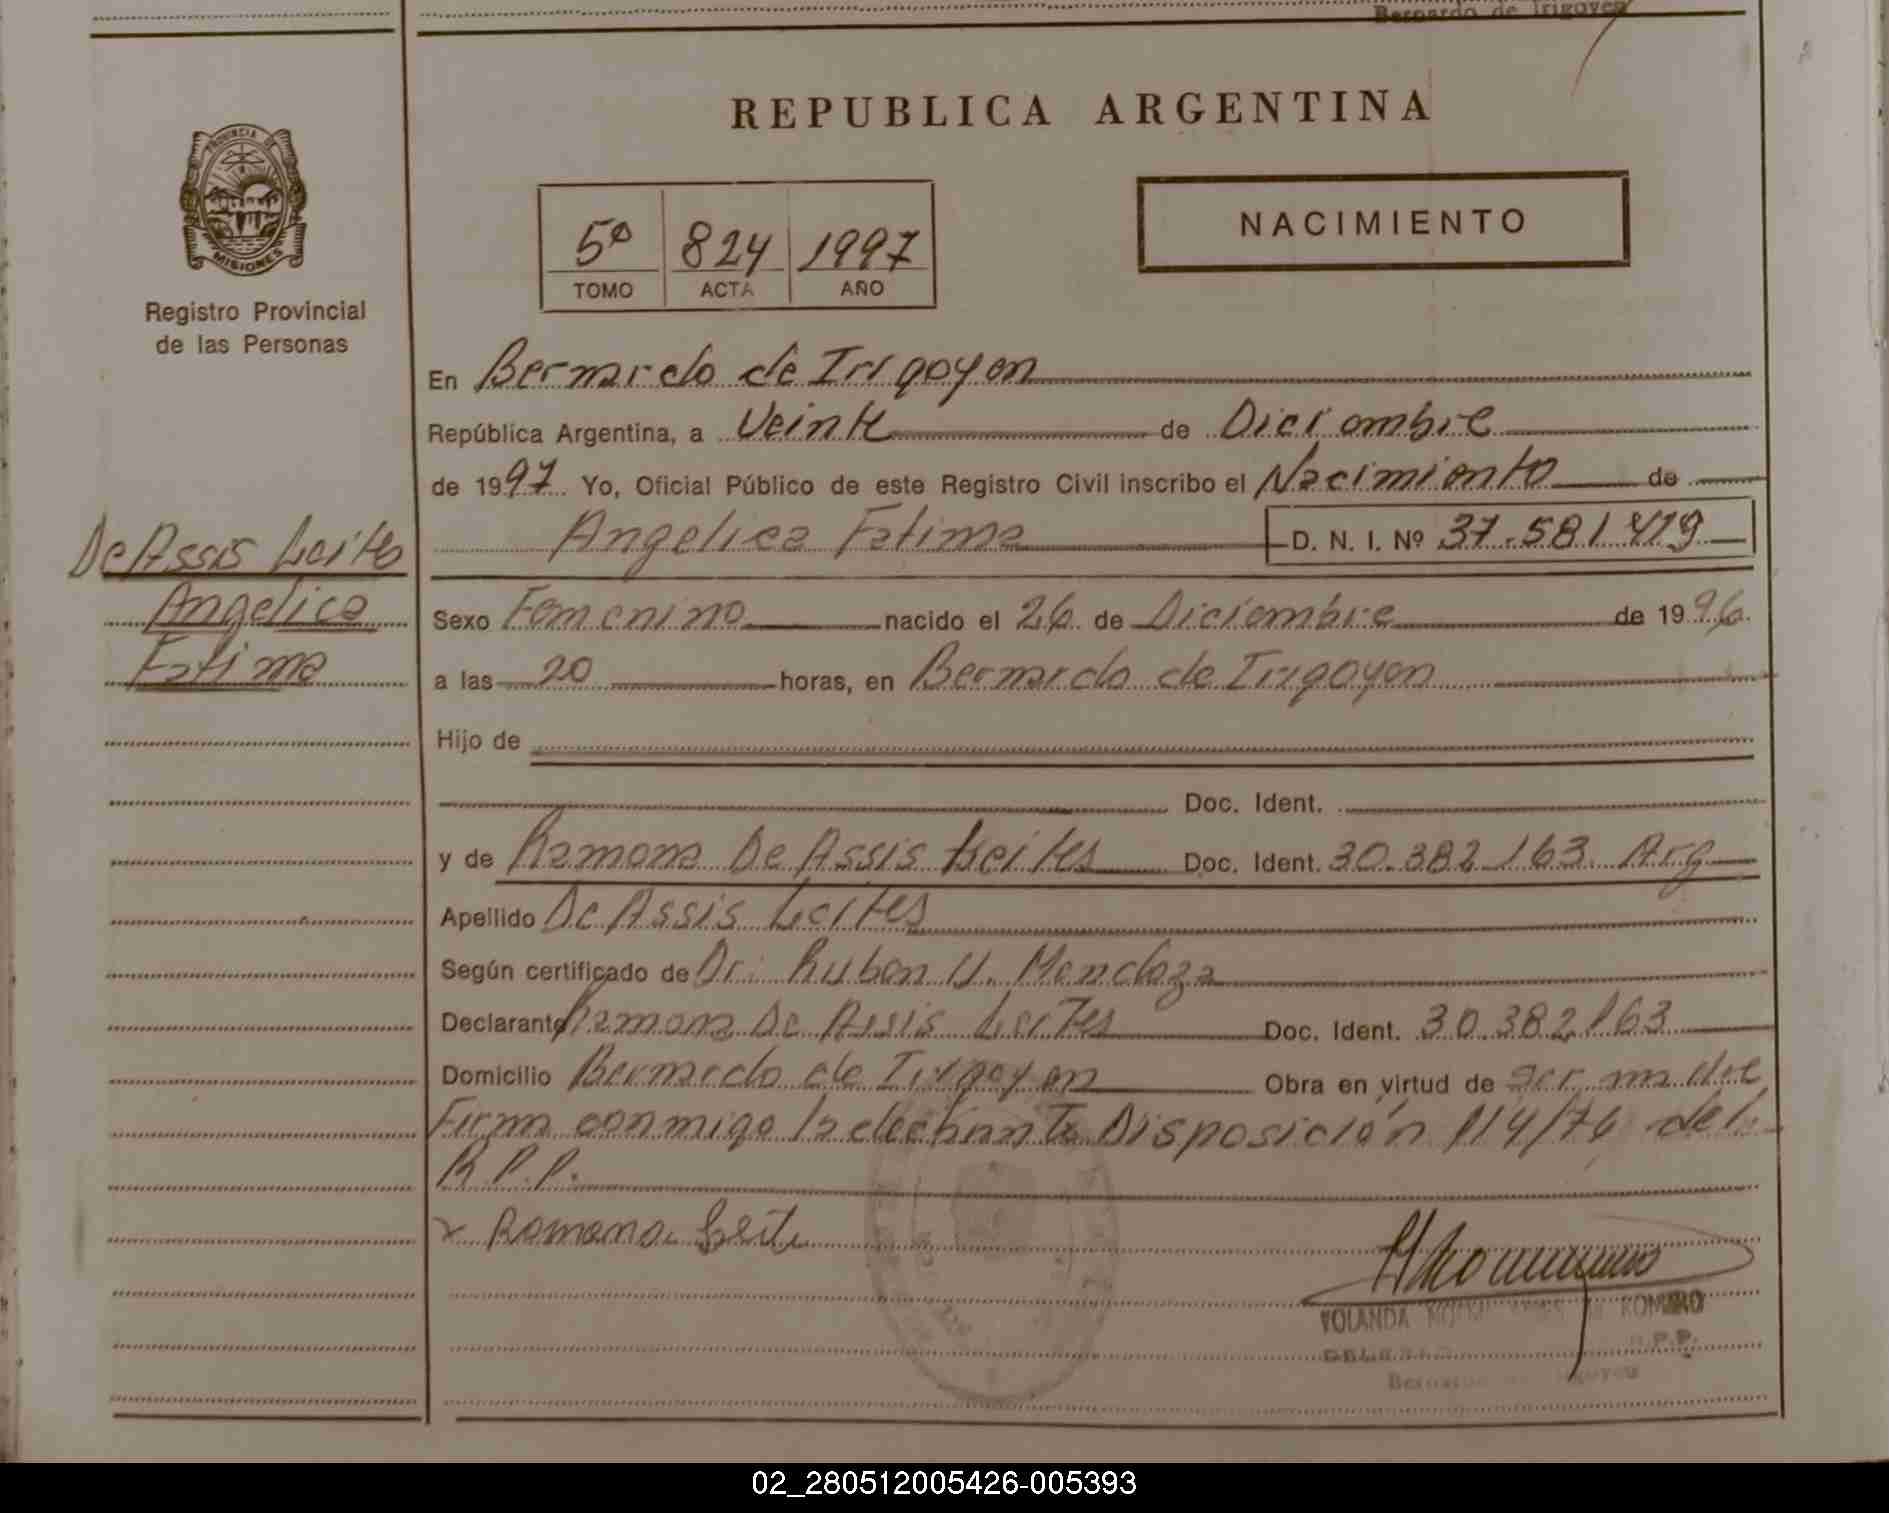 Bernardo de Irigoyen
REPUBLICA ARGENTINA
PROVINCIA DE
MISIONES
Registro Provincial
de las Personas
5º 824 1997
TOMO ACTA AÑO
NACIMIENTO
En Bernardo de Irigoyen
República Argentina, a Veinte de Diciembre
de 1997 Yo, Oficial Público de este Registro Civil inscribo el Nacimiento de
Angelica Fatima D. N. I. Nº 37.581.419
De Assis Leites
Angelica
Fatima
Sexo Femenino nacido el 26 de Diciembre de 1996
a las 20 horas, en Bernardo de Irigoyen
Hijo de
Doc. Ident.
y de Ramona De Assis Leites Doc. Ident. 30.382.163 Arg
Apellido De Assis Leites
Según certificado de Dr. Ruben U. Mendoza
Declarante Ramona De Assis Leites Doc. Ident. 30.382.163
Domicilio Bernardo de Irigoyen Obra en virtud de ser madre
Firma conmigo la declarante Disposición 114/76 del
R.P.P.
x Ramona Leite
YOLANDA ROMERO
R.P.P.
Bernardo de Irigoyen
02_280512005426-005393